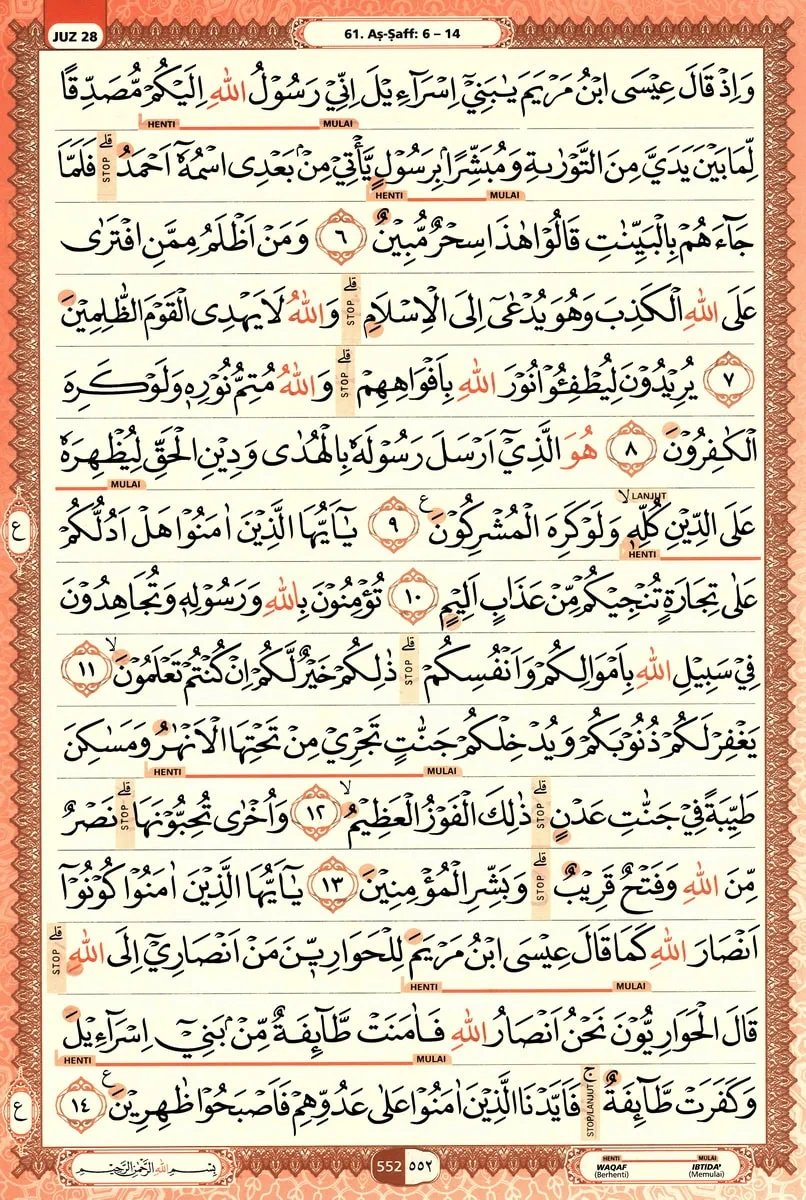 JUZ 28
61. Aṣ-Ṣaff: 6 – 14
وَاِذْ قَالَ عِيْسَى ابْنُ مَرْيَمَ يٰبَنِيْٓ اِسْرَاۤءِيْلَ اِنِّيْ رَسُوْلُ اللّٰهِ اِلَيْكُمْ مُّصَدِّقًا
HENTI MULAI
لِّمَا بَيْنَ يَدَيَّ مِنَ التَّوْرٰىةِ وَمُبَشِّرًاۢ بِرَسُوْلٍ يَّأْتِيْ مِنْۢ بَعْدِى اسْمُهٗٓ اَحْمَدُ ۗ STOP فَلَمَّا
HENTI MULAI
جَاۤءَهُمْ بِالْبَيِّنٰتِ قَالُوْا هٰذَا سِحْرٌ مُّبِيْنٌ ٦ وَمَنْ اَظْلَمُ مِمَّنِ افْتَرٰى
عَلَى اللّٰهِ الْكَذِبَ وَهُوَ يُدْعٰىٓ اِلَى الْاِسْلَامِ ۗ STOP وَاللّٰهُ لَا يَهْدِى الْقَوْمَ الظّٰلِمِيْنَ
٧ يُرِيْدُوْنَ لِيُطْفِـُٔوْا نُوْرَ اللّٰهِ بِاَفْوَاهِهِمْ ۗ STOP وَاللّٰهُ مُتِمُّ نُوْرِهٖ وَلَوْ كَرِهَ
الْكٰفِرُوْنَ ٨ هُوَ الَّذِيْٓ اَرْسَلَ رَسُوْلَهٗ بِالْهُدٰى وَدِيْنِ الْحَقِّ لِيُظْهِرَهٗ
MULAI
LANJUT
عَلَى الدِّيْنِ كُلِّهٖۙ وَلَوْ كَرِهَ الْمُشْرِكُوْنَ ࣖ ٩ يٰٓاَيُّهَا الَّذِيْنَ اٰمَنُوْا هَلْ اَدُلُّكُمْ
HENTI
عَلٰى تِجَارَةٍ تُنْجِيْكُمْ مِّنْ عَذَابٍ اَلِيْمٍ ١٠ تُؤْمِنُوْنَ بِاللّٰهِ وَرَسُوْلِهٖ وَتُجَاهِدُوْنَ
فِيْ سَبِيْلِ اللّٰهِ بِاَمْوَالِكُمْ وَاَنْفُسِكُمْ ۗ STOP ذٰلِكُمْ خَيْرٌ لَّكُمْ اِنْ كُنْتُمْ تَعْلَمُوْنَۙ ١١
يَغْفِرْ لَكُمْ ذُنُوْبَكُمْ وَيُدْخِلْكُمْ جَنّٰتٍ تَجْرِيْ مِنْ تَحْتِهَا الْاَنْهٰرُ وَمَسٰكِنَ
HENTI MULAI
طَيِّبَةً فِيْ جَنّٰتِ عَدْنٍ ۗ STOP ذٰلِكَ الْفَوْزُ الْعَظِيْمُۙ ١٢ وَاُخْرٰى تُحِبُّوْنَهَا ۗ STOP نَصْرٌ
مِّنَ اللّٰهِ وَفَتْحٌ قَرِيْبٌ ۗ STOP وَبَشِّرِ الْمُؤْمِنِيْنَ ١٣ يٰٓاَيُّهَا الَّذِيْنَ اٰمَنُوْا كُوْنُوْٓا
اَنْصَارَ اللّٰهِ كَمَا قَالَ عِيْسَى ابْنُ مَرْيَمَ لِلْحَوَارِيّٖنَ مَنْ اَنْصَارِيْٓ اِلَى اللّٰهِ ۗ STOP
HENTI MULAI
قَالَ الْحَوَارِيُّوْنَ نَحْنُ اَنْصَارُ اللّٰهِ فَاٰمَنَتْ طَّاۤىِٕفَةٌ مِّنْۢ بَنِيْٓ اِسْرَاۤءِيْلَ
HENTI MULAI
وَكَفَرَتْ طَّاۤىِٕفَةٌ ۚ STOP/LANJUT فَاَيَّدْنَا الَّذِيْنَ اٰمَنُوْا عَلٰى عَدُوِّهِمْ فَاَصْبَحُوْا ظٰهِرِيْنَ ࣖ ١٤
ع
ع
بِسْمِ اللّٰهِ الرَّحْمٰنِ الرَّحِيْمِ
552 ٥٥٢
HENTI MULAI
WAQAF (Berhenti) IBTIDA' (Memulai)